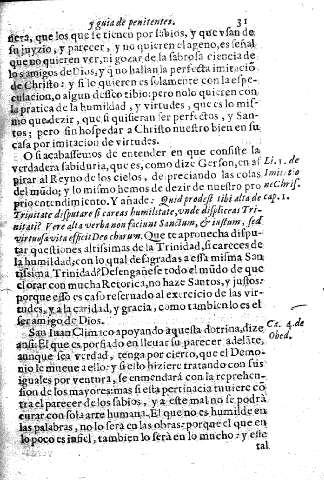 y guia de penitentes. 31
nera, que los que se tienen por sabios, y que vsan de
su juyzio, y parecer, y no quieren el ageno, es señal
que no quieren ver, ni gozar de la sabrosa ciencia de
los amigos de Dios, y q̃ no hallan la perfecta imitaciõ
de Christo: y si lo quieren es solamente con la espe-
culacion, o algun desseo tibio: pero nolo quieren con
la pratica de la humildad, y virtudes, que es lo mis-
mo que dezir, que si quisieran ser perfectos, y San-
tos; pero sin hospedar a Christo nuestro bien en su
casa por imitacion de virtudes.
O si acabassemos de entender en que consiste la
verdadera sabiduria, que es, como dize Gerson, en as
pirar al Reyno de los cielos, de preciando las colas
del mũdo; y lo mismo hemos de dezir de nuestro pro
prio entendimiento. Y añade: Quid prodest tibi alta de
Trinitate disputare si careas humilitate, vnde displiceas Tri-
nitati? Vere alta verba non faciunt Sanctum, & iustum, sed
virtuosa vita efficit Deo charum. Que te aprouecha dispu-
tar questiones altissimas de la Trinidad, si careces de
la humildad, con lo qual desagradas a essa misma San
tissima Trinidad? Defengañese todo el mũdo de que
el orar con mucha Retorica, no haze Santos, y justos:
porque esso es caso reseruado al exercicio de las vir-
tudes, y a la caridad, y gracia, como tambien lo es el
ser amigo de Dios.
San Iuan Climaco apoyando aquesta dotrina, dize
ansi: El que es porfiado en lleuar su parecer adelãte,
aunque sea verdad, tenga por cierto, que el Demo-
nio le mueue a ello: y si esto hiziere tratando con sus
iguales por ventura, se enmendarà con la reprehen-
sion de los mayores mas si esta pertinacia tuuiere cõ
tra el parecer de los sabios, y a este mal no se podrà
curar con sola arte humana. El que no es humilde en
las palabras, no lo serà en las obras: porque el que en
lo poco es infiel, tambien lo serà en lo mucho: y este
tal
Li. 1. de
Imitatio
ne Chris.
cap. 1.
Ca. 4. de
Obed.